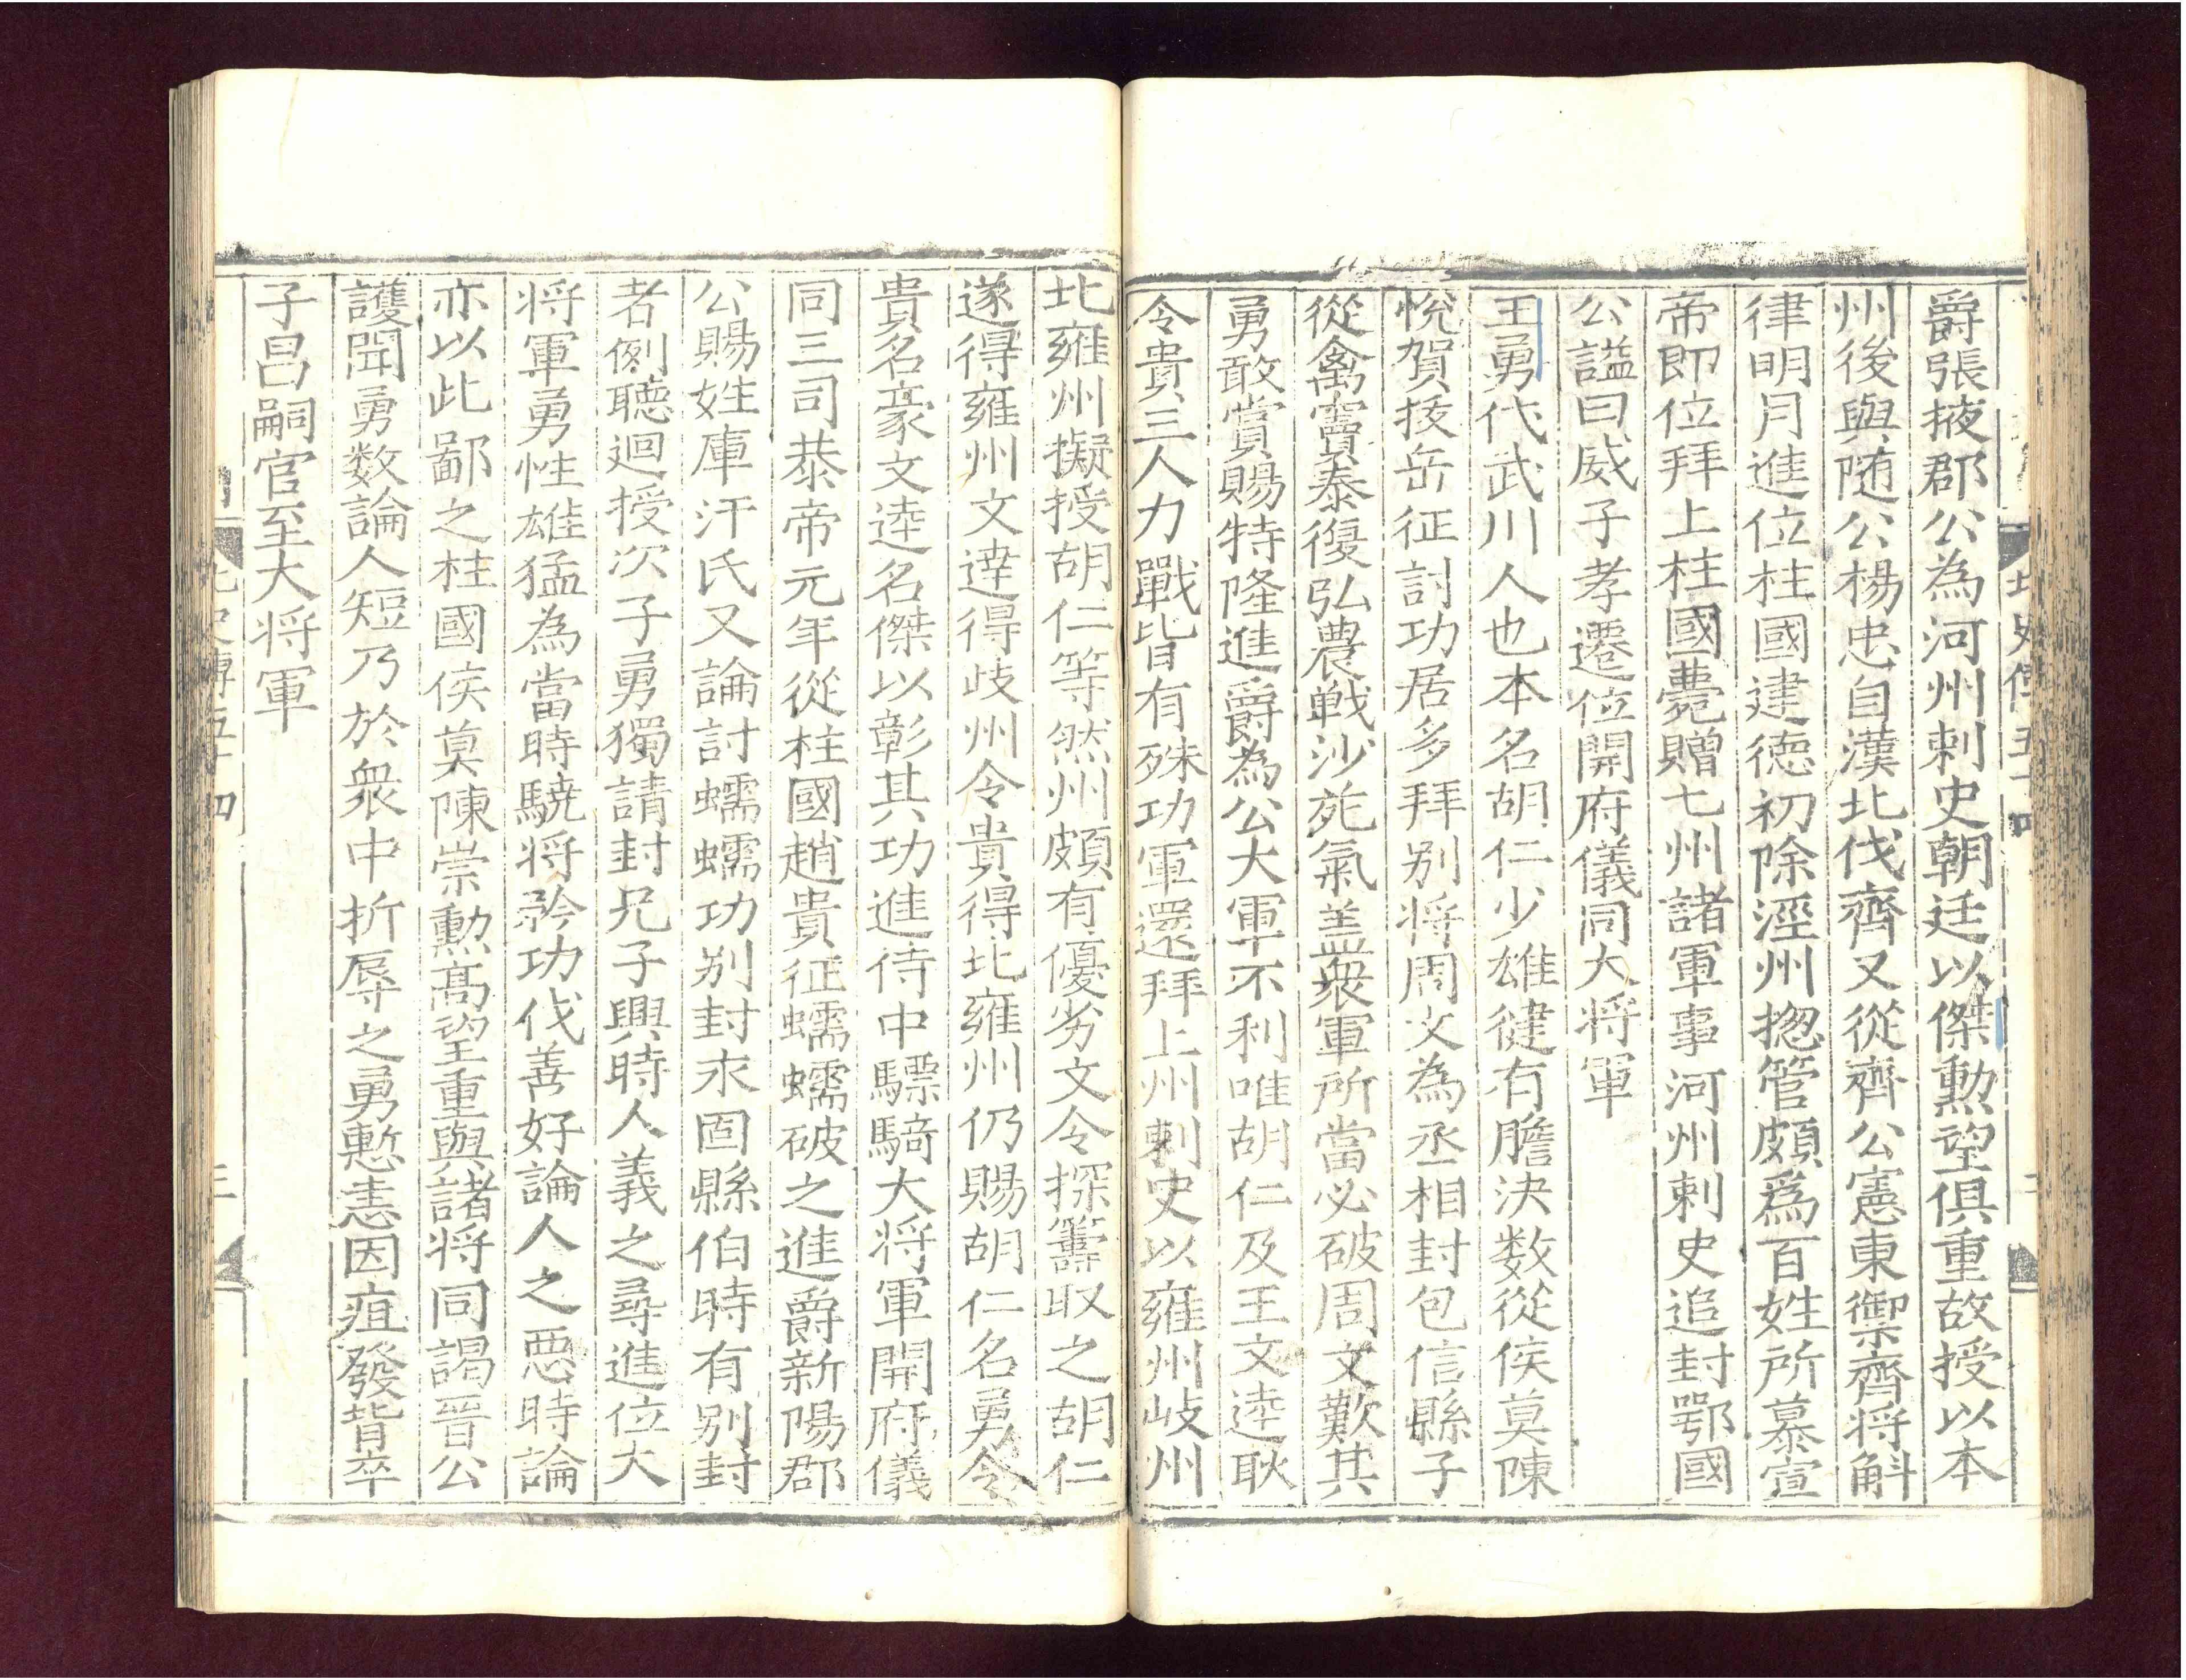 北史傳五十四
爵張掖郡公為河州刺史朝廷以傑勲望俱重故授以本
州後與随公楊忠自漢北伐齊又從齊公憲東禦齊将斛
律明月進位柱國建徳初除涇州揔管頗爲百姓所慕宣
帝即位拜上柱國薨贈七州諸軍事河州刺史追封鄂國
公謚曰威子孝遷位開府儀同大将軍
王勇代武川人也本名胡仁少雄徤有膽決数從侯莫陳
悅賀拔岳征討功居多拜别将周文為丞相封包信縣子
從禽竇泰復弘農戦沙苑氣盖衆軍所當必破周文歎其
勇敢賞賜特隆進爵為公大軍不利唯胡仁及王文逹耿
令貴三人力戰皆有殊功軍還拜上州刺史以雍州岐州
北雍州擬授胡仁等然州頗有優劣文令探籌取之胡仁
遂得雍州文逹得岐州令貴得北雍州仍賜胡仁名勇令
貴名豪文逹名傑以彰其功進侍中驃騎大将軍開府儀
同三司恭帝元年從柱國趙貴征蠕蠕破之進爵新陽郡
公賜姓庫汗氏又論討蠕蠕功别封永固縣伯時有别封
者例聽迴授次子勇獨請封兄子興時人義之尋進位大
将軍勇性雄猛為當時驍将矜功伐善好論人之惡時論
亦以此鄙之柱國侯莫陳崇勲髙望重與諸将同謁晋公
護聞勇数論人短乃於衆中折辱之勇慙恚因疽發背卒
子昌嗣官至大将軍
北史傳五十四
三